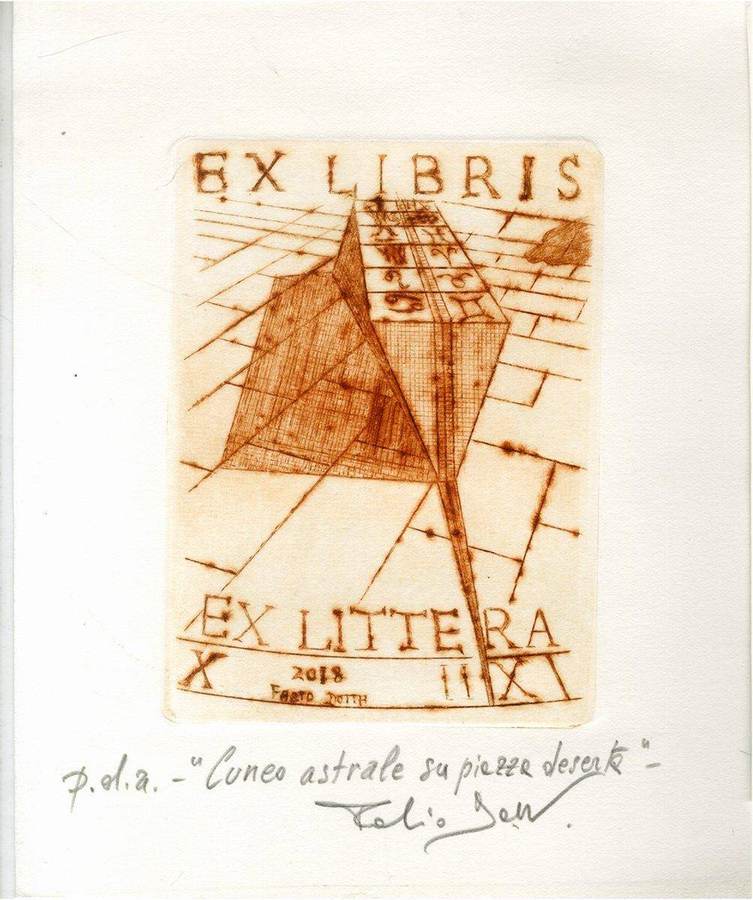 EX LIBRIS
EX LITTERA
X 2018 II XI
FABIO DOTTA
p.d.a. - "Cuneo astrale su piazza deserta" -
Fabio